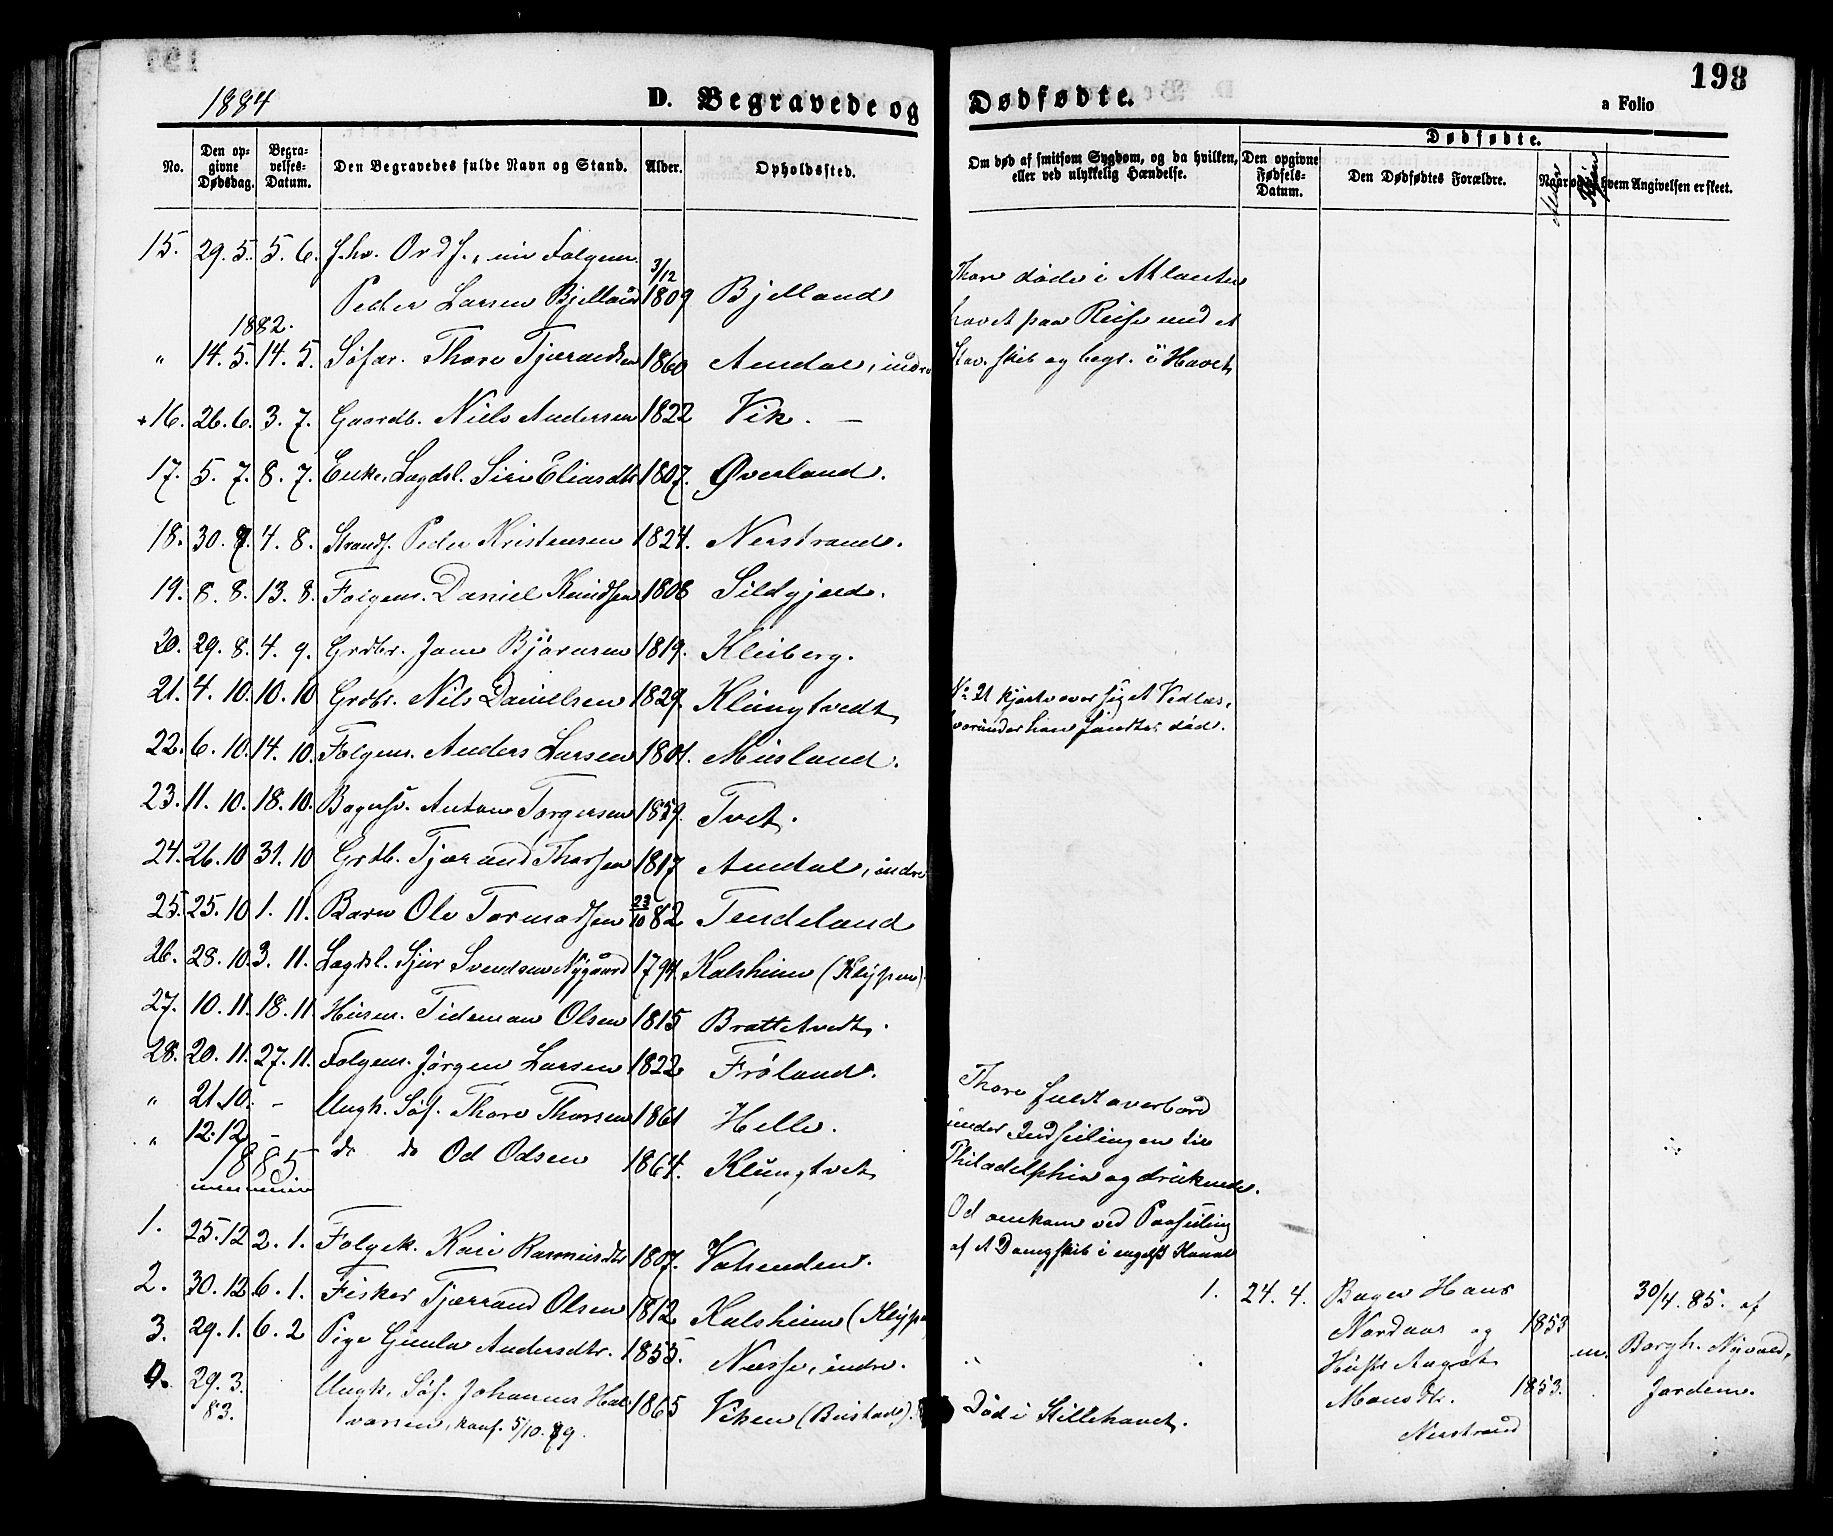 198
1884 D. Begravede og Dødfødte. a Folio
No. Den opgivne Dødsdag. Begravelses-Datum. Den Begravedes fulde Navn og Stand. Alder. Opholdssted. Om død af smitsom Sygdom, og da hvilken, eller ved ulykkelig Hændelse. Den opgivne Fødsels-Datum. Dødfødte. Den Dødfødtes Forældre. Naar og af hvem Angivelsen er skeet.
Alder Kjøn
15. 29. 5. 5. 6. f. hv. Ordf., nu Folgem.
Peder Larsen Bjelland 3/12 1809 Bjelland
1882.
" 14. 5. 14. 5. Søfar. Thore Tjerandsen 1860 Amdal, indre
Thore døde i Atlanter
havet paa Reise med et
Stav. skib og begr. i Havet
+16. 26. 6. 3. 7. Gaardb. Niels Andersen 1822 Vik. —
17. 5. 7. 8. 7. Enke, Lægdsl. Siri Eliasdtr 1807. Øverland.
18. 30. 7. 4. 8. Strands. Peder Kristensen 1824. Nerstrand.
19. 8. 8. 13. 8. Folgem. Daniel Knudsen 1808 Sildgjerd.
20. 29. 8. 4. 9. Grdbr. Jone Bjørnsen 1819. Kleiberg.
21. 4. 10. 10. 10 Grdbr. Nils Danielsen 1829. Klungtvedt
No. 21 kjørte over sig et Vedlæs,
hvorunder han fandtes død.
22. 6. 10. 14. 10. Folgem. Anders Larsen 1801. Musland.
23. 11. 10. 18. 10. Bagersv. Anton Torgersen 1859. Tvet.
24. 26. 10 31. 10 Grdb. Tjærand Thorsen 1817 Amdal, indre
25. 25. 10 1. 11. Barn Ole Tormodsen 23/10 82 Tendeland
26. 28. 10. 3. 11. Lægdsl. Sjur Svendsen Nygaard 1794. Kalsheim (Klypen).
27. 10. 11. 18. 11. Husm. Tideman Olsen 1815 Brattetvedt.
28. 20. 11. 27. 11. Folgem. Jørgen Larsen 1822 Frøland.
" 21. 10. - Ungk. Søf. Thore Thorsen 1861 Helle.
" 12. 12 - do do Od Odsen 1864. Klungtvet
Thore faldt overbord
under Indseilingen til
Philadelphia og druknede.
Od omkom ved Paaseiling
af et Dampskib i engelsk Kanal
1885
1. 25. 12 2. 1. Folgek. Kari Rasmusdtr 1807. Vatsenden.
2. 30. 12 6. 1. Fisker Tjærand Olsen 1812 Kalsheim (Klype
3. 29. 1. 6. 2 Pige Gunla Andersdtr. 1855. Næsse, indre.
4. 29. 3. 83. Ungk. Søf. Johannes Hal
vorsen, konf. 5/10. 79. 1865 Viken (Bustad). Død i Stillehavet.
1. 24. 4. Bager Hans
Nordaas og 1853
Hustr. Aagot
Monsdtr. 1853.
Nerstrand
m.
30/4. 85. af
Borgh. Nyvold,
Jordem.